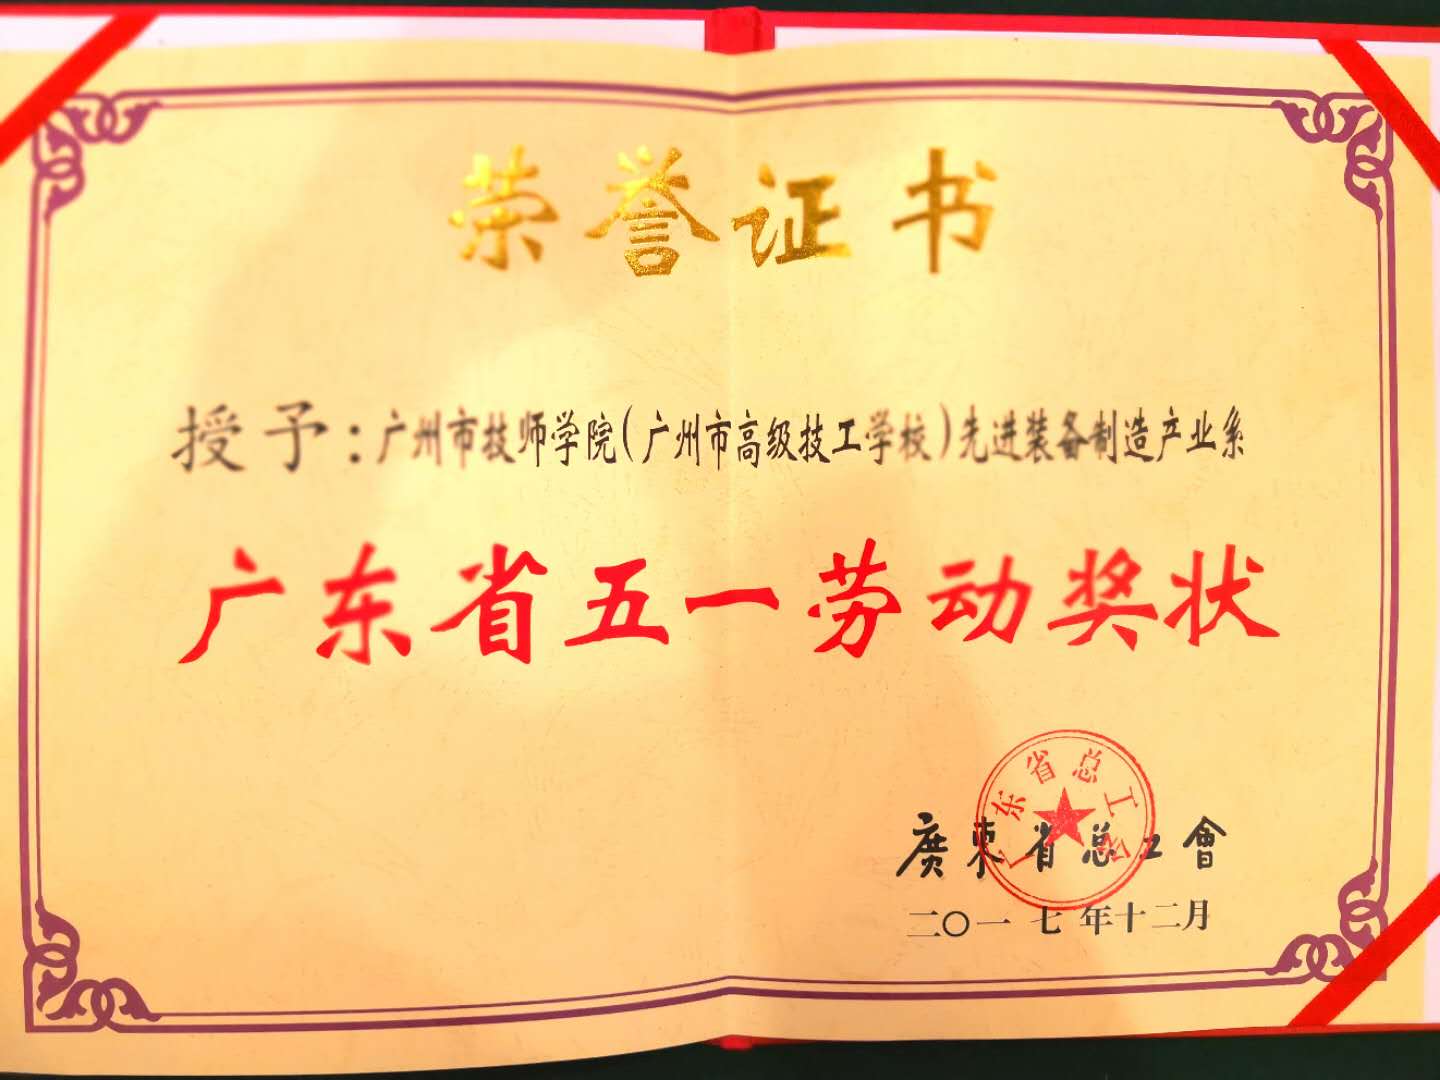 荣誉证书
授予：广州市技师学院（广州市高级技工学校）先进装备制造产业系
广东省五一劳动奖状
广东省总工会
廣東省总工會
二〇一七年十二月